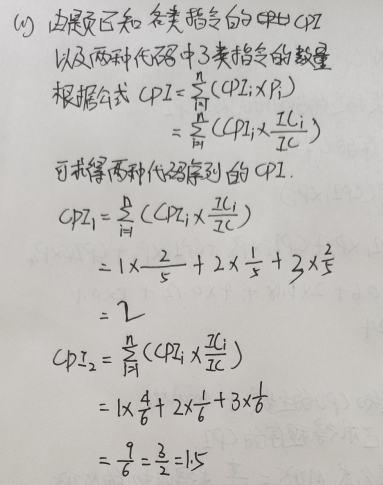 (1) 由题页已知 各类指令的CPI
以及两种代码中3类指令的数量
根据公式 CPI = \sum_{i=1}^{n}(CPI_i × P_i)
= \sum_{i=1}^{n}(CPI_i × \frac{IC_i}{IC})
可求得两种代码序列的CPI.
CPI_1 = \sum_{i=1}^{n}(CPI_i × \frac{IC_i}{IC})
= 1 × \frac{2}{5} + 2 × \frac{1}{5} + 3 × \frac{2}{5}
= 2
CPI_2 = \sum_{i=1}^{n}(CPI_i × \frac{IC_i}{IC})
= 1 × \frac{4}{6} + 2 × \frac{1}{6} + 3 × \frac{1}{6}
= \frac{9}{6} = \frac{3}{2} = 1.5